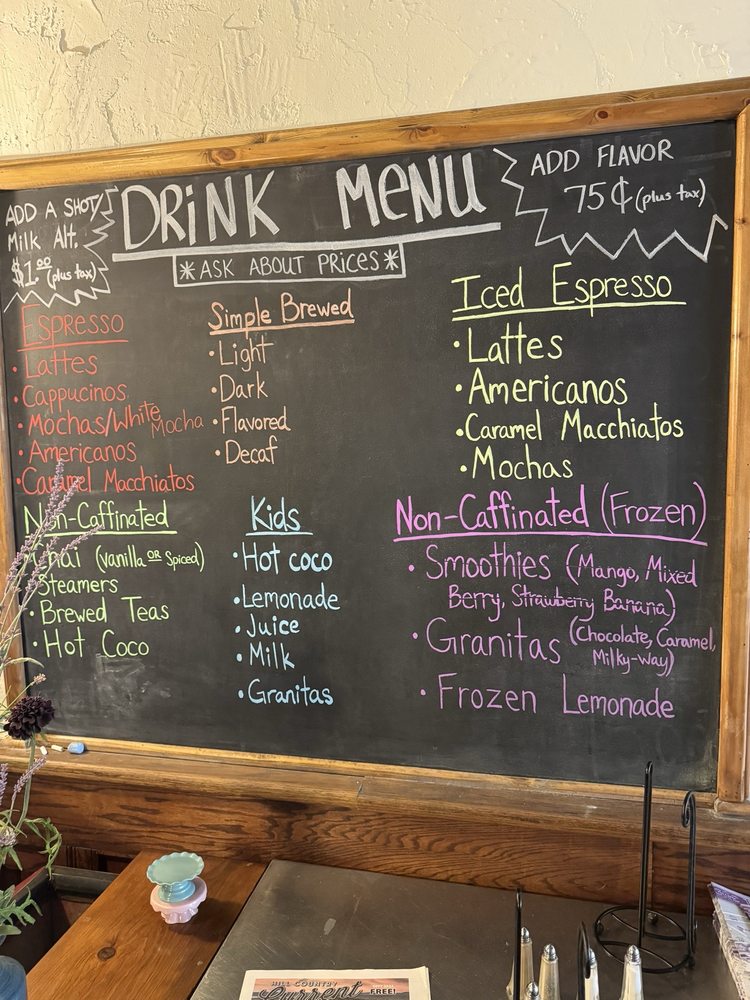 ADD A SHOT/
Milk Alt.
$1.00 (plus tax)
DRiNK MENU
*ASK ABOUT PRICES*
ADD FLAVOR
75¢ (plus tax)
Espresso
• Lattes
• Cappucinos
• Mochas/White Mocha
• Americanos
• Caramel Macchiatos
Simple Brewed
• Light
• Dark
• Flavored
• Decaf
Iced Espresso
• Lattes
• Americanos
• Caramel Macchiatos
• Mochas
Non-Caffinated
• Chai (Vanilla OR Spiced)
• Steamers
• Brewed Teas
• Hot Coco
Kids
• Hot coco
• Lemonade
• Juice
• Milk
• Granitas
Non-Caffinated (Frozen)
• Smoothies (Mango, Mixed
Berry, Strawberry Banana)
• Granitas (Chocolate, Caramel,
Milky-Way)
• Frozen Lemonade
HILL COUNTRY
Current
FREE!